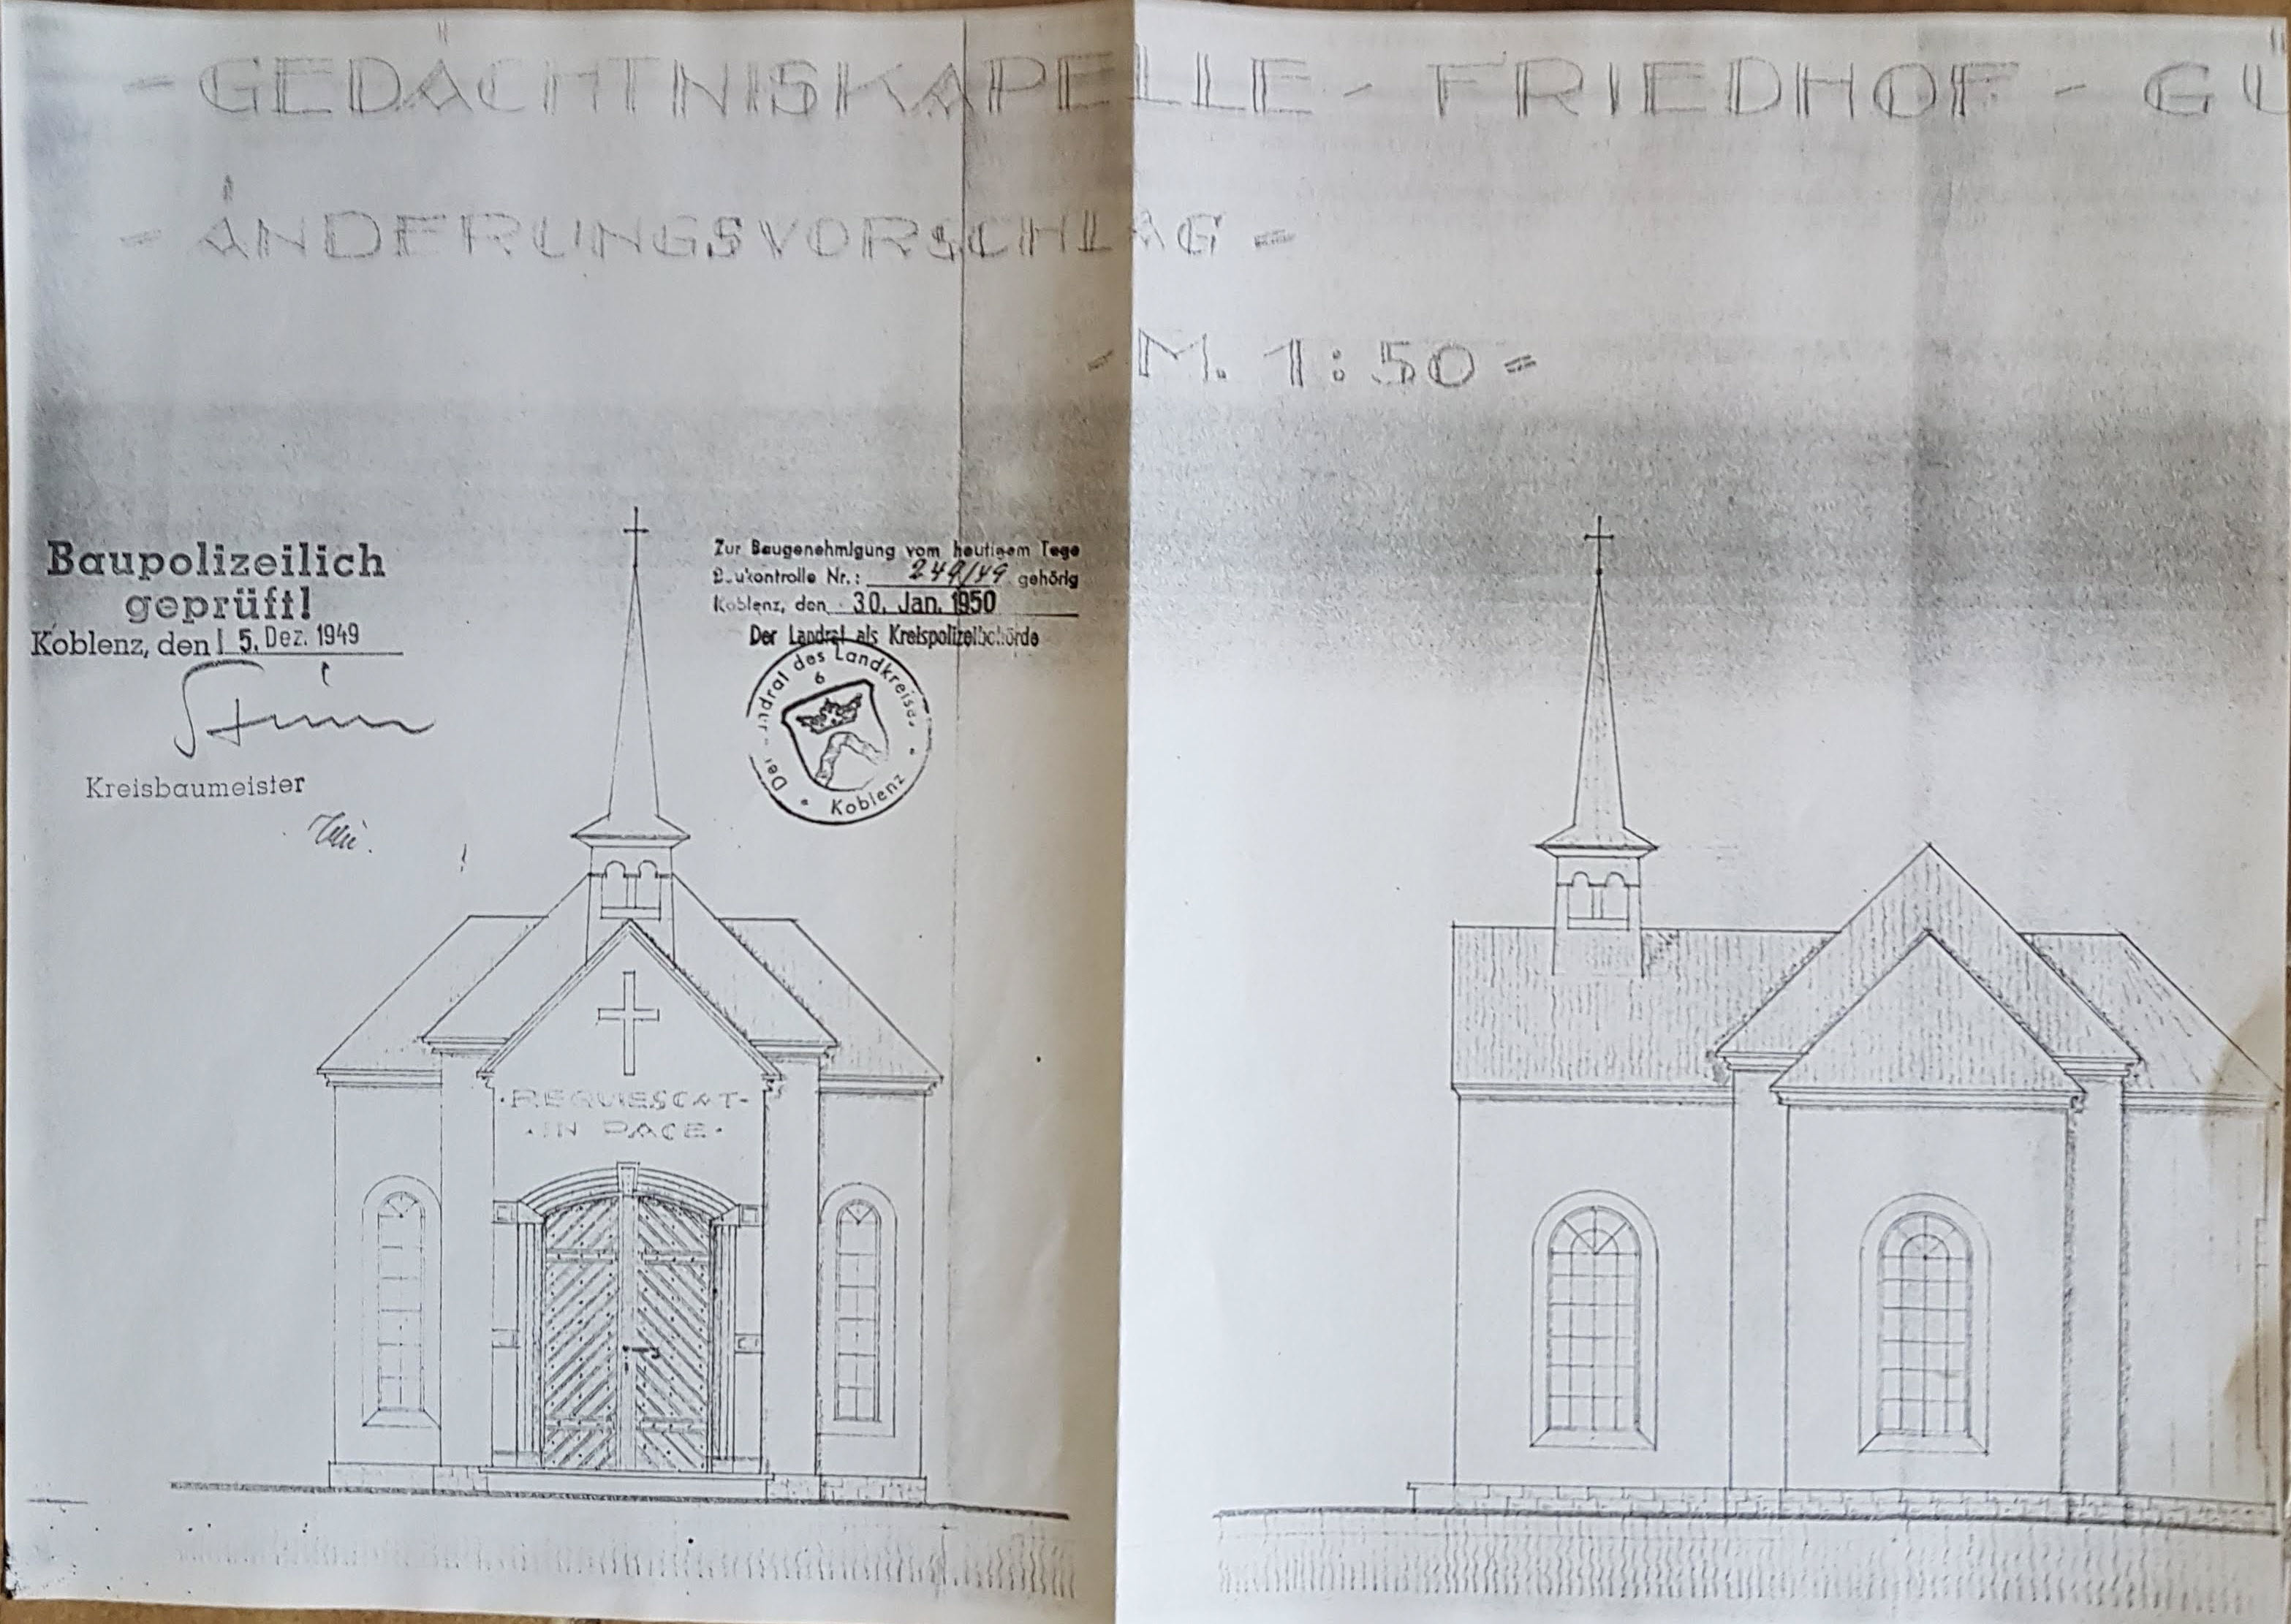 - GEDÄCHTNISKAPELLE - FRIEDHOF - GÜ
- ÄNDERUNGSVORSCHLAG -
- M. 1:50 -
Baupolizeilich
geprüft!
Koblenz, den 15. Dez. 1949
Kreisbaumeister
Zur Baugenehmigung vom heutigem Tage
Baukontrolle Nr.: 249/49 gehörig
Koblenz, den 30. Jan. 1950
Der Landrat als Kreispolizeibehörde
Der Landrat des Landkreises
6
Koblenz
·REQUIESCAT·
·IN PACE·